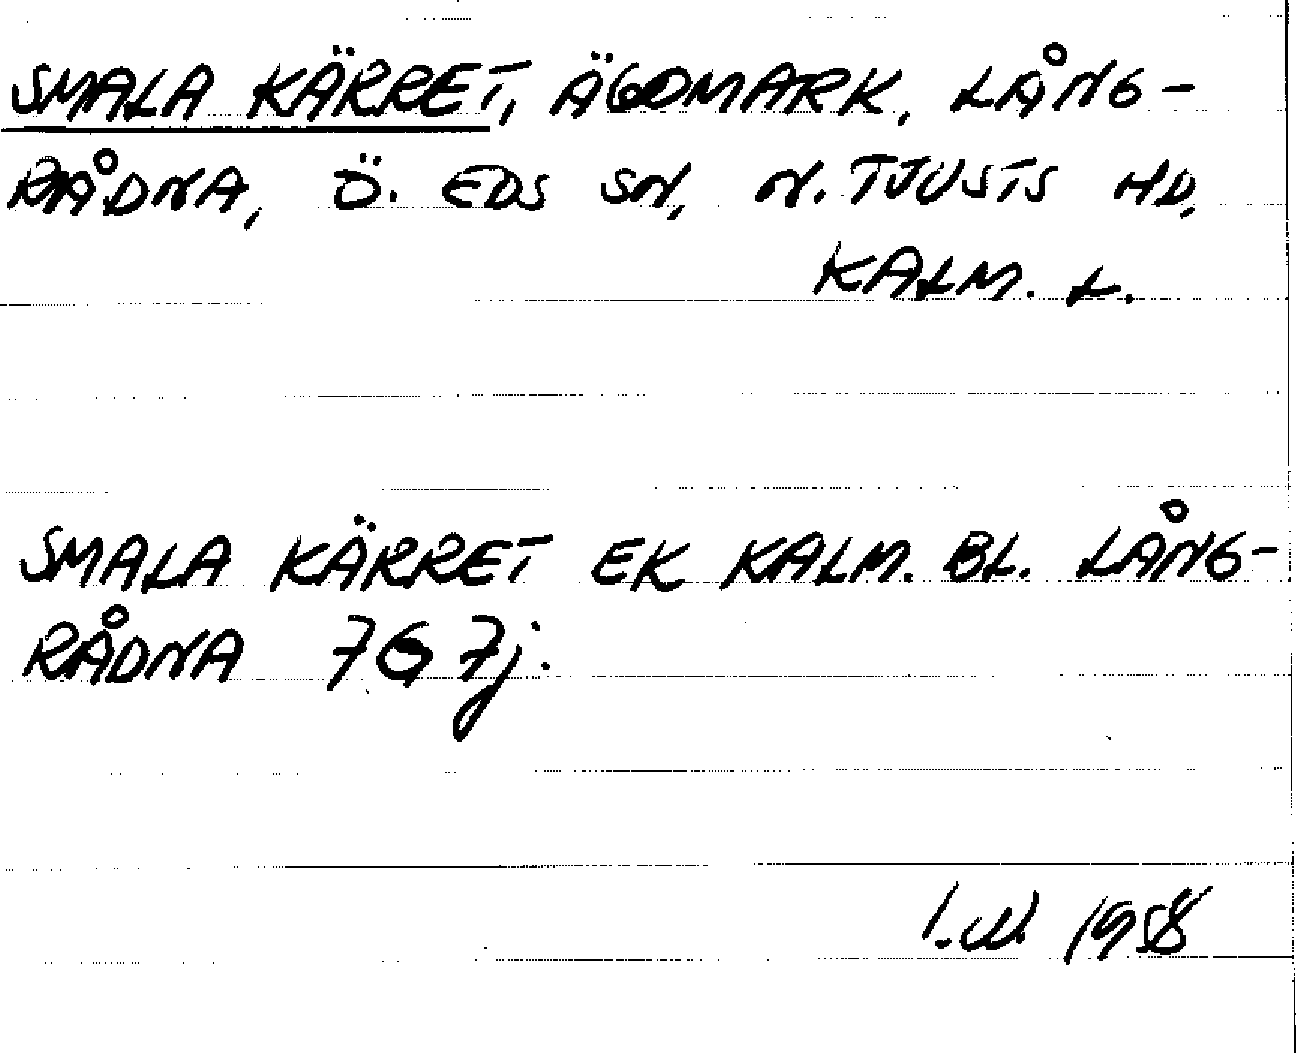 SMALA KÄRRET, ÄGOMARK, LÅNG-
RÅDNA, Ö. EDS SN, N. TJUSTS HD,
KALM. L.
SMALA KÄRRET EK KALM. BL. LÅNG-
RÅDNA 767j.
I.W. 1958